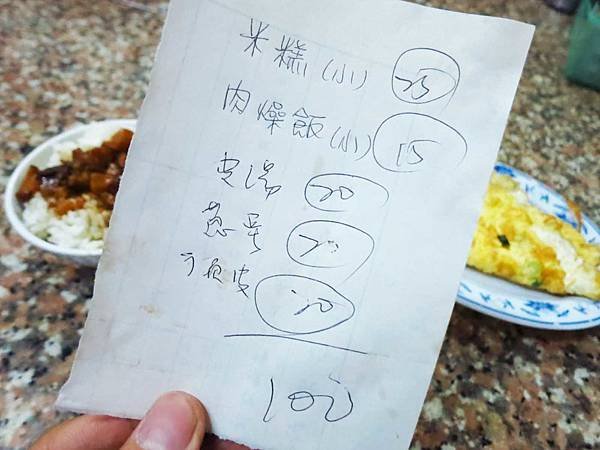 米糕(小) 25
肉燥飯(小) 15
湯 20
蔥蛋 20
魚皮 20
100